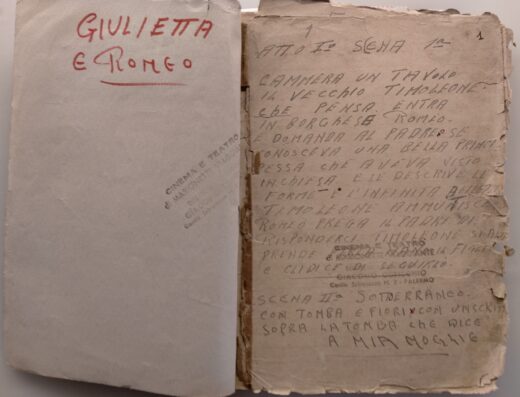 GIULIETTA
E ROMEO
CINEMA E TEATRO
1
1
ATTO Iº SCENA 1ª
CAMMERA UN TAVOLO
IL VECCHIO TIMOLEONE
CHE PENSA ENTRA
IN BORGHESE ROMEO
E DOMANDA AL PADRE SE
CONOSCEVA UNA BELLA PRINCI
PESSA CHE AVEVA VISTO
IN CHIESA E LE DESCRIVE LE
FORME E L'INFINITA
TIMOLEONE AMMUTISCE
ROMEO PREGA IL PADRE DI
RISPONDERCI TIMOLEONE
PRENDE IL FIGLIO
E CI DICE DI SEGUIRLO
CINEMA E TEATRO
GIACOMO CUTICCHIO
PALERMO
SCENA IIª SOTTERRANEO
CON TOMBA E FIORI CON UNSCRI
SOPRA LATOMBA CHE DICE
A MIA MOGLIE